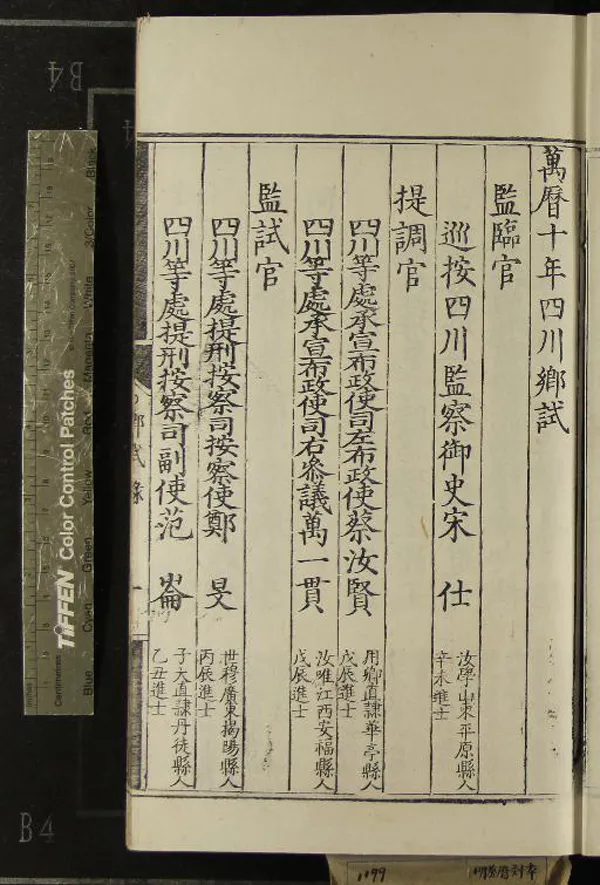 萬曆十年四川鄉試
監臨官
巡按四川監察御史宋 仕
汝學山東平原縣人
辛未進士
提調官
四川等處承宣布政使司左布政使蔡汝賢
用卿直隸華亭縣人
戊辰進士
四川等處承宣布政使司右叅議萬一貫
汝唯江西安福縣人
戊辰進士
監試官
四川等處提刑按察司按察使鄭 旻
世穆廣東揭陽縣人
丙辰進士
四川等處提刑按察司副使范 崙
子大直隸丹徒縣人
乙丑進士
鄉試錄
一
TIFFEN Color Control Patches
Blue
Cyan
Green
Yellow
Red
Magenta
White
3/Color
Black
Inches
Centimetres
B4
B4
1199